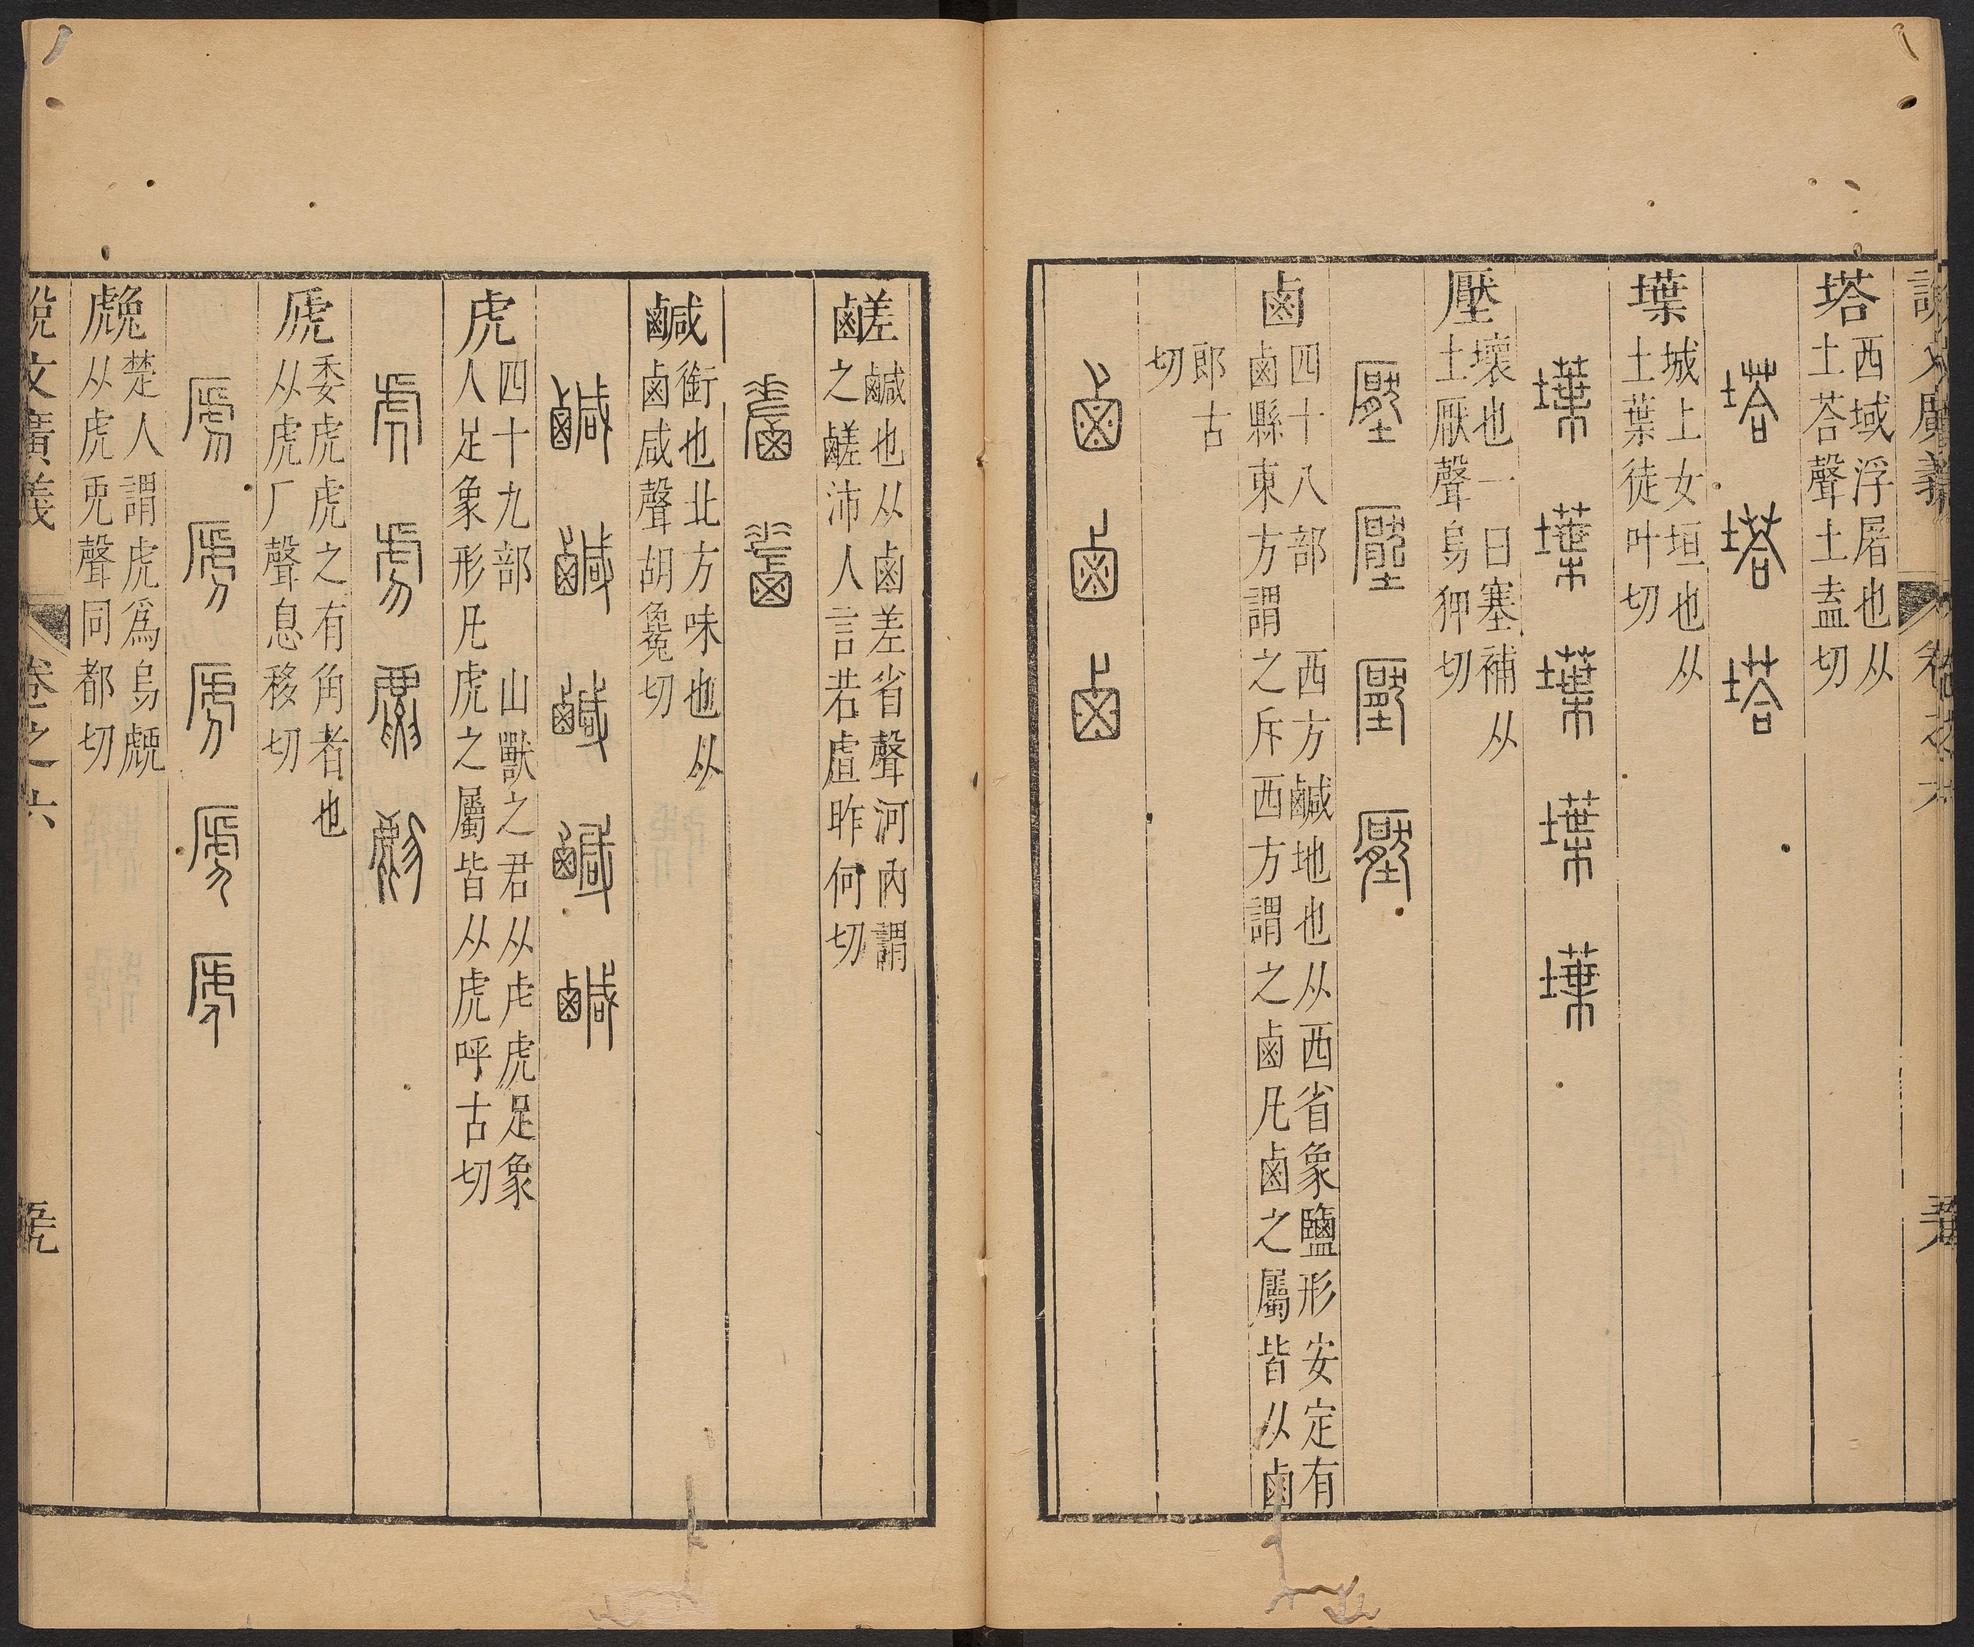 塔
西域浮屠也从
土荅聲土盍切
塔 塔 塔
墣
城上女垣也从
土葉徒叶切
壓
壞也一曰塞補从
土厭聲烏狎切
壓 壓 壓 壓
鹵
四十八部 西方鹹地也从西省象鹽形安定有
鹵縣東方謂之斥西方謂之鹵凡鹵之屬皆从鹵
郎古
切
鹵 鹵 鹵
鹺
鹹也从鹵差省聲河內謂
之鹺沛人言若虘昨何切
鹺 鹺
鹹
銜也北方味也从
鹵咸聲胡毚切
鹹 鹹 鹹 鹹 鹹
虎
四十九部 山獸之君从虍虎足象
人足象形凡虎之屬皆从虎呼古切
虎 虎
虒
委虒虎之有角者也
从虎厂聲息移切
虒 虒 虒 虒 虒
䖘
楚人謂虎爲烏䖘
从虎兎聲同都切
說文廣義 卷之六